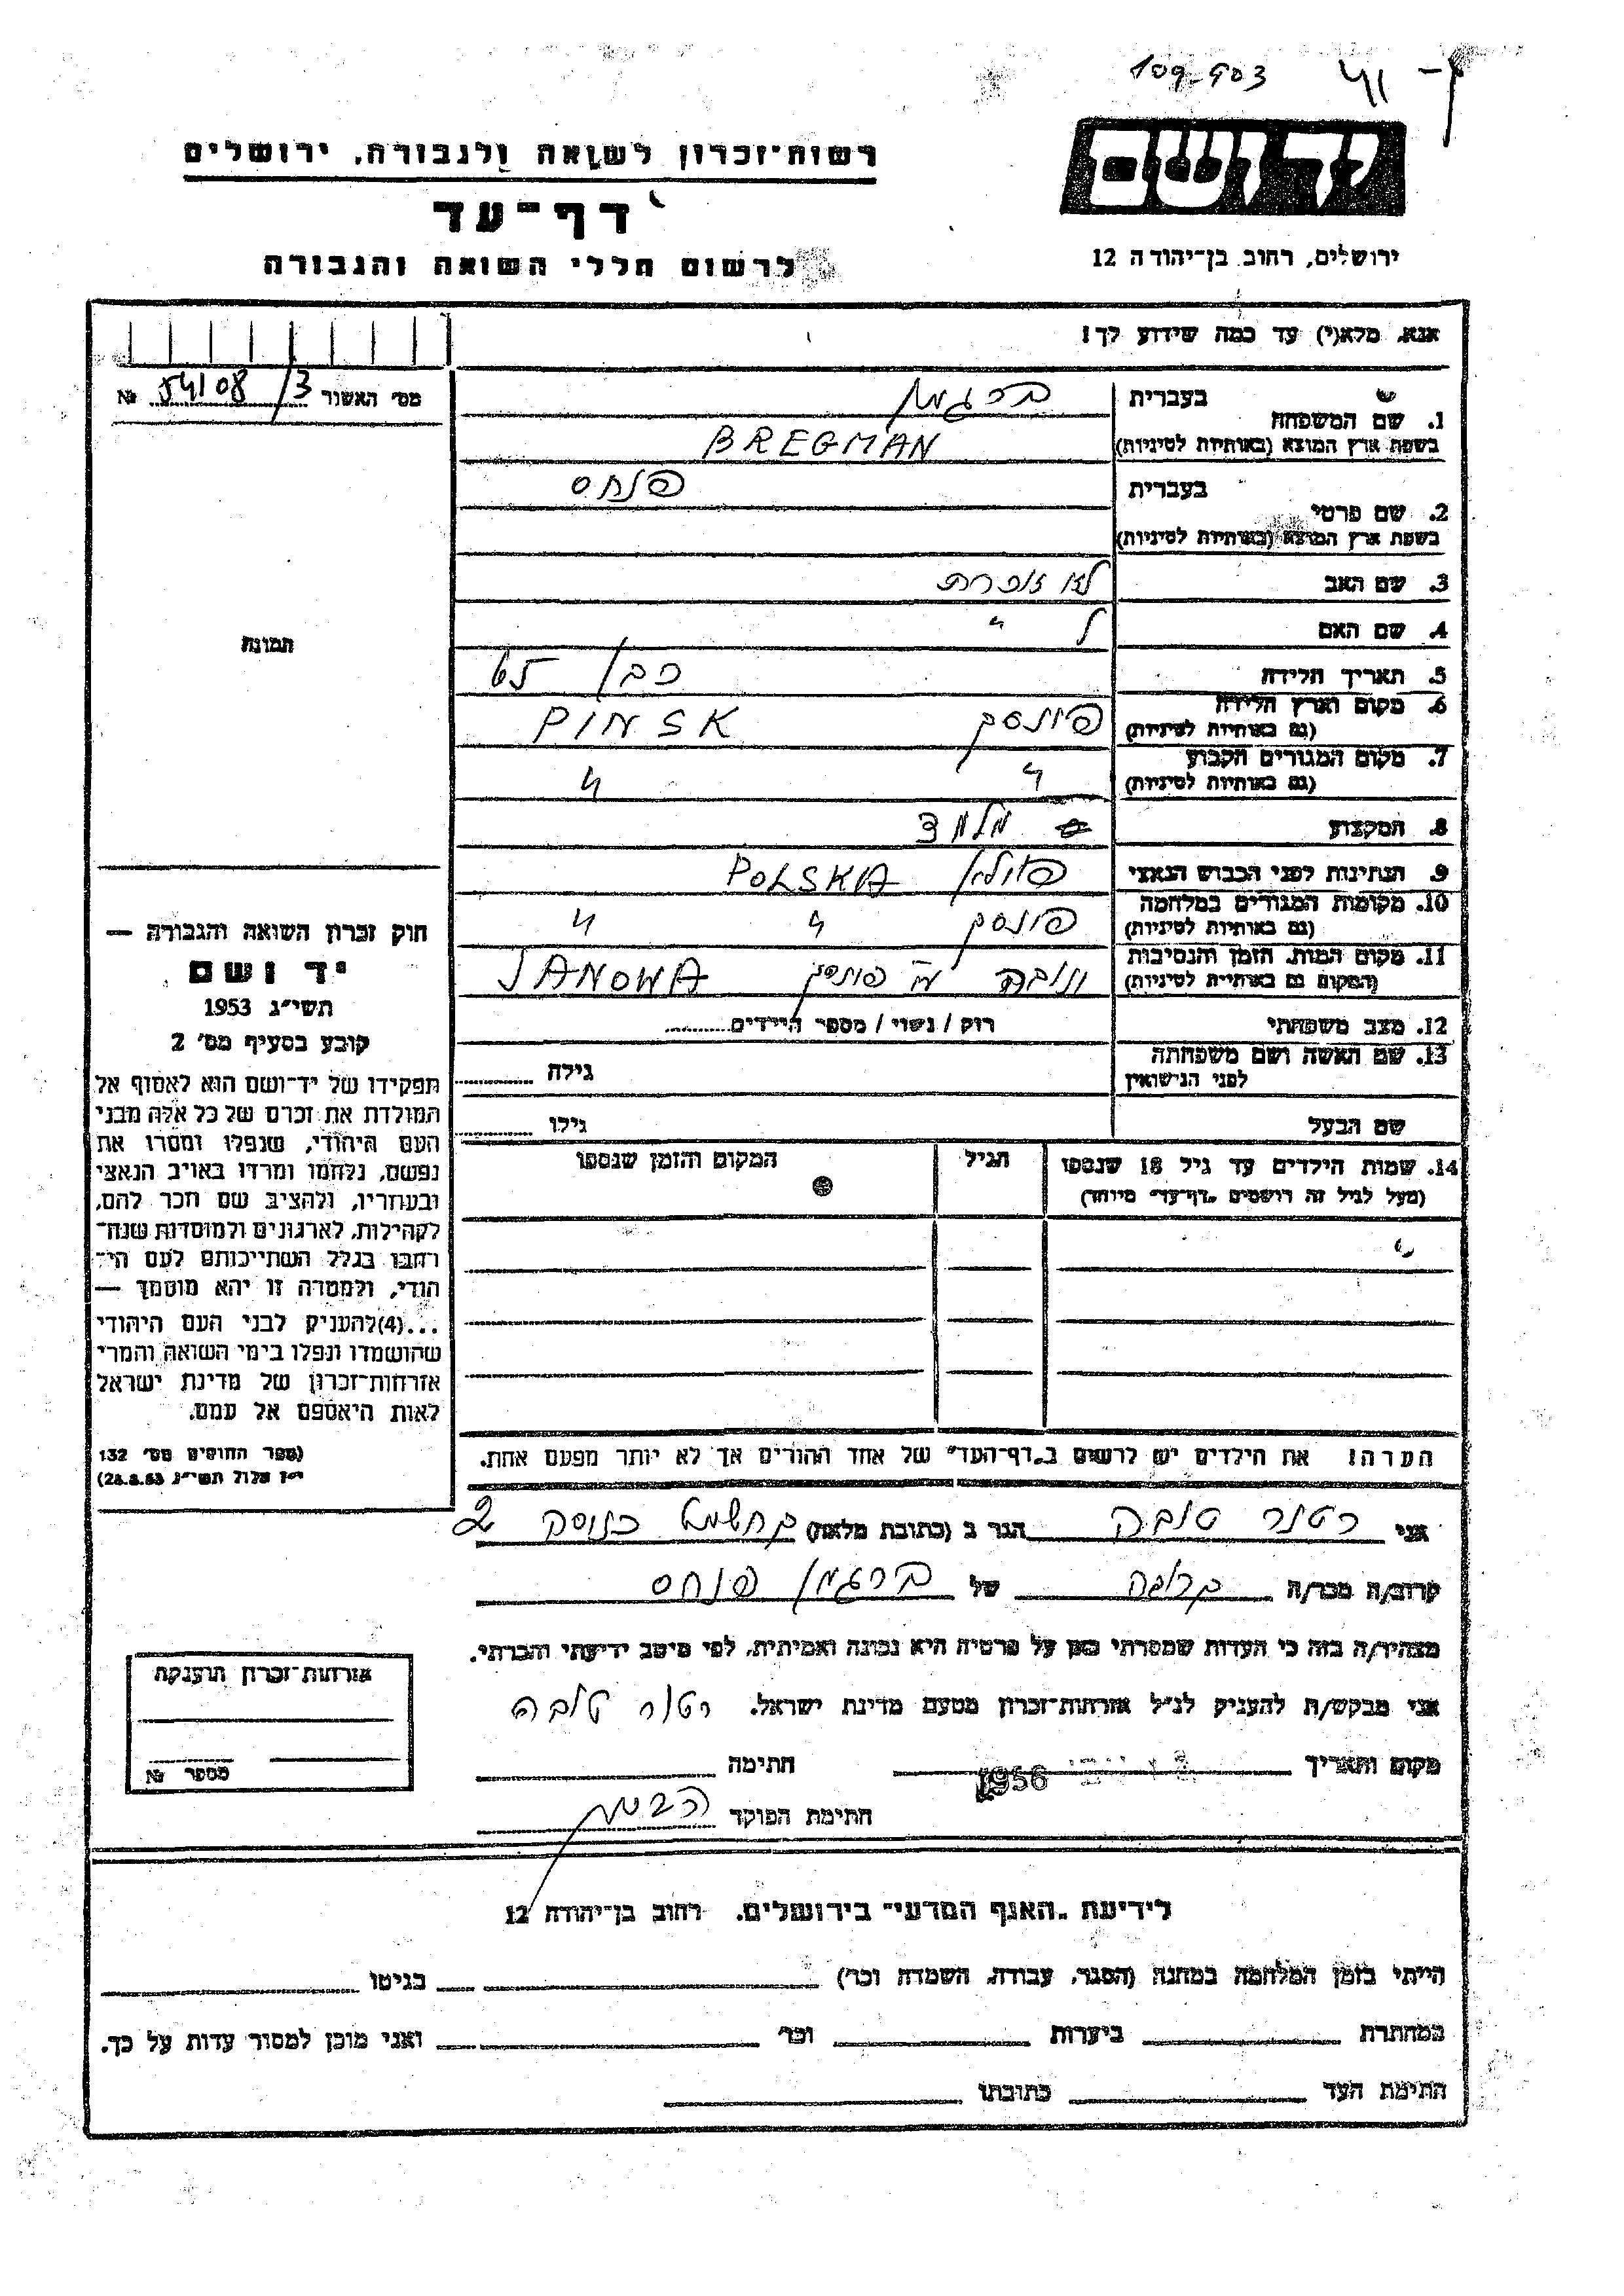 109-903 41 -
יד ושם
רשות־זכרון לשואה ולגבורה, ירושלים
דף־עד
לרשום חללי השואה והגבורה
ירושלים, רחוב בן־יהודה 12
אנא, מלא(י) עד כמה שידוע לך!
מס׳ האשור 54108/3 №
1. שם המשפחה
בעברית ברגמן
בשפת ארץ המוצא (באותיות לטיניות) BREGMAN
2. שם פרטי
בעברית פנחס
בשפת ארץ המוצא (באותיות לטיניות)
3. שם האב לא זוכרת
4. שם האם ל "
5. תאריך הלידה כבן 65
6. מקום וארץ הלידה (גם באותיות לטיניות) פינסק PINSK
7. מקום המגורים הקבוע (גם באותיות לטיניות) " "
8. המקצוע מלמד
9. הנתינות לפני הכבוש הנאצי פולין POLSKA
10. מקומות המגורים במלחמה (גם באותיות לטיניות) פינסק " "
11. מקום המות, הזמן והנסיבות (המקום גם באותיות לטיניות) ינובה ע״י פינסק JANOWA
12. מצב משפחתי רוק / נשוי / מספר הילדים
13. שם האשה ושם משפחתה לפני הנישואין גילה
שם הבעל גילו
14. שמות הילדים עד גיל 18 שנספו הגיל המקום והזמן שנספו
(מעל לגיל זה רושמים „דף־עד״ מיוחד)
הערה! את הילדים יש לרשום ב„דף־העד״ של אחד ההורים אך לא יותר מפעם אחת.
תמונה
חוק זכרון השואה והגבורה —
יד ושם
תשי״ג 1953
קובע בסעיף מס׳ 2
תפקידו של יד־ושם הוא לאסוף אל
המולדת את זכרם של כל אלה מבני
העם היהודי, שנפלו ומסרו את
נפשם, נלחמו ומרדו באויב הנאצי
ובעוזריו, ולהציב שם וזכר להם,
לקהילות, לארגונים ולמוסדות שנח־
רבו בגלל השתייכותם לעם הי־
הודי, ולמטרה זו יהא מוסמך —
...(4)להעניק לבני העם היהודי
שהושמדו ונפלו בימי השואה והמרי
אזרחות־זכרון של מדינת ישראל
לאות היאספם אל עמם.
(ספר החוקים מס׳ 132
י״ז אלול תשי״ג 28.8.53)
אני רטנר טובה הגר ב (כתובת מלאה) 2
קרוב/ה מכר/ה קרובה של ברגמן פנחס
מצהיר/ה בזה כי העדות שמסרתי כאן על פרטיה היא נכונה ואמיתית, לפי מיטב ידיעתי והכרתי.
אני מבקש/ת להעניק לנ״ל אזרחות־זכרון מטעם מדינת ישראל. רטנר טובה
מקום ותאריך 1956 חתימה
חתימת הפוקד
אזרחות־זכרון תוענקה
מספר №
לידיעת „האגף המדעי״ בירושלים. רחוב בן־יהודה 12
הייתי בזמן המלחמה במחנה (הסגר, עבודה, השמדה וכר) בגיטו
במחתרת ביערות וכר ואני מוכן למסור עדות על כך.
חתימת העד כתובתו